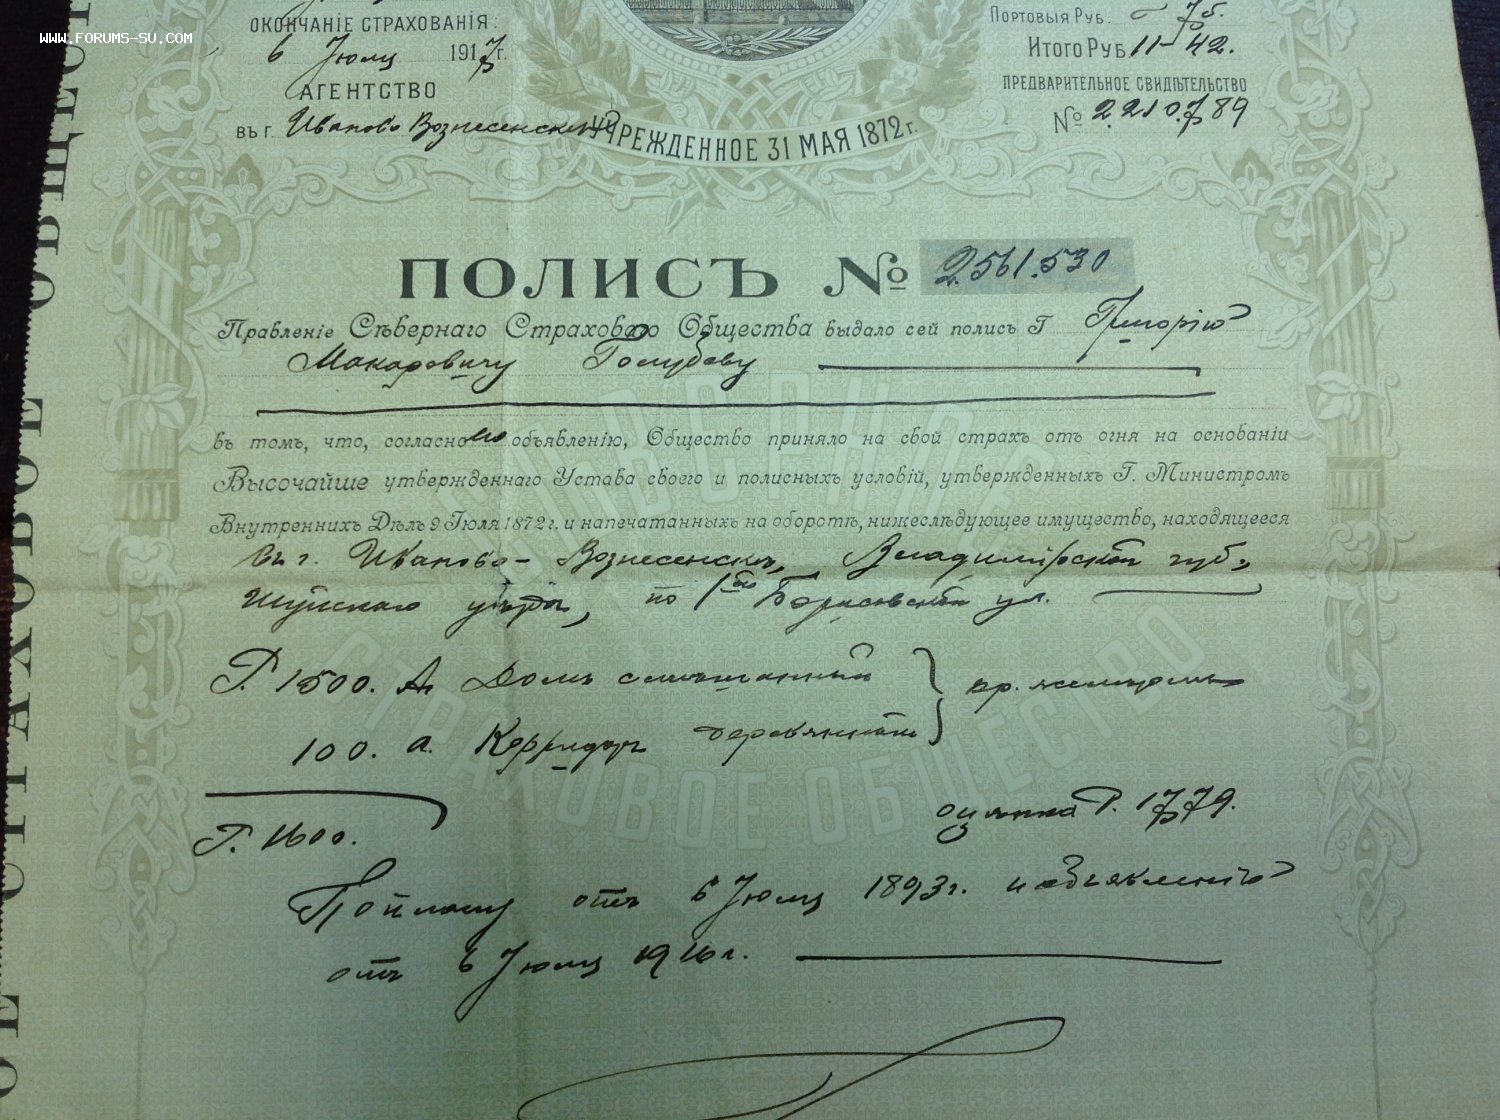 WWW.FORUMS-SU.COM
ОКОНЧАНІЕ СТРАХОВАНІЯ:
6 Іюля 1917 г.
АГЕНТСТВО
въ г. Иваново Вознесенскѣ
Портовыя Руб. 75.
Итого Руб 11-42.
ПРЕДВАРИТЕЛЬНОЕ СВИДѢТЕЛЬСТВО
№ 2.210.789
УЧРЕЖДЕННОЕ 31 МАЯ 1872 г.
ПОЛИСЪ № 2.561.530
Правленіе Сѣвернаго Страховаго Общества выдало сей полисъ Г Григорію
Макаровичу Голубеву
въ томъ, что, согласно его объявленію, Общество приняло на свой страхъ отъ огня на основаніи
Высочайше утвержденнаго Устава своего и полисныхъ условій, утвержденныхъ Г. Министромъ
Внутреннихъ Дѣлъ 9 Іюля 1872 г. и напечатанныхъ на оборотѣ, нижеслѣдующее имущество, находящееся
въ г. Иваново-Вознесенскѣ, Владимірской губ.,
Шуйскаго уѣзда, по 1ой Борисовской ул.
Р. 1500. А. Домъ смѣшанный
100. а. Корридоръ деревянный
кр. желѣзомъ
Р. 1600.
оцѣнка Р. 1779.
По плану отъ 6 Іюля 1893 г. и объявленію
отъ 6 Іюля 1916 г.
СѢВЕРНОЕ
СТРАХОВОЕ ОБЩЕСТВО
ОЕ СТРАХОВОЕ ОБЩЕСТ